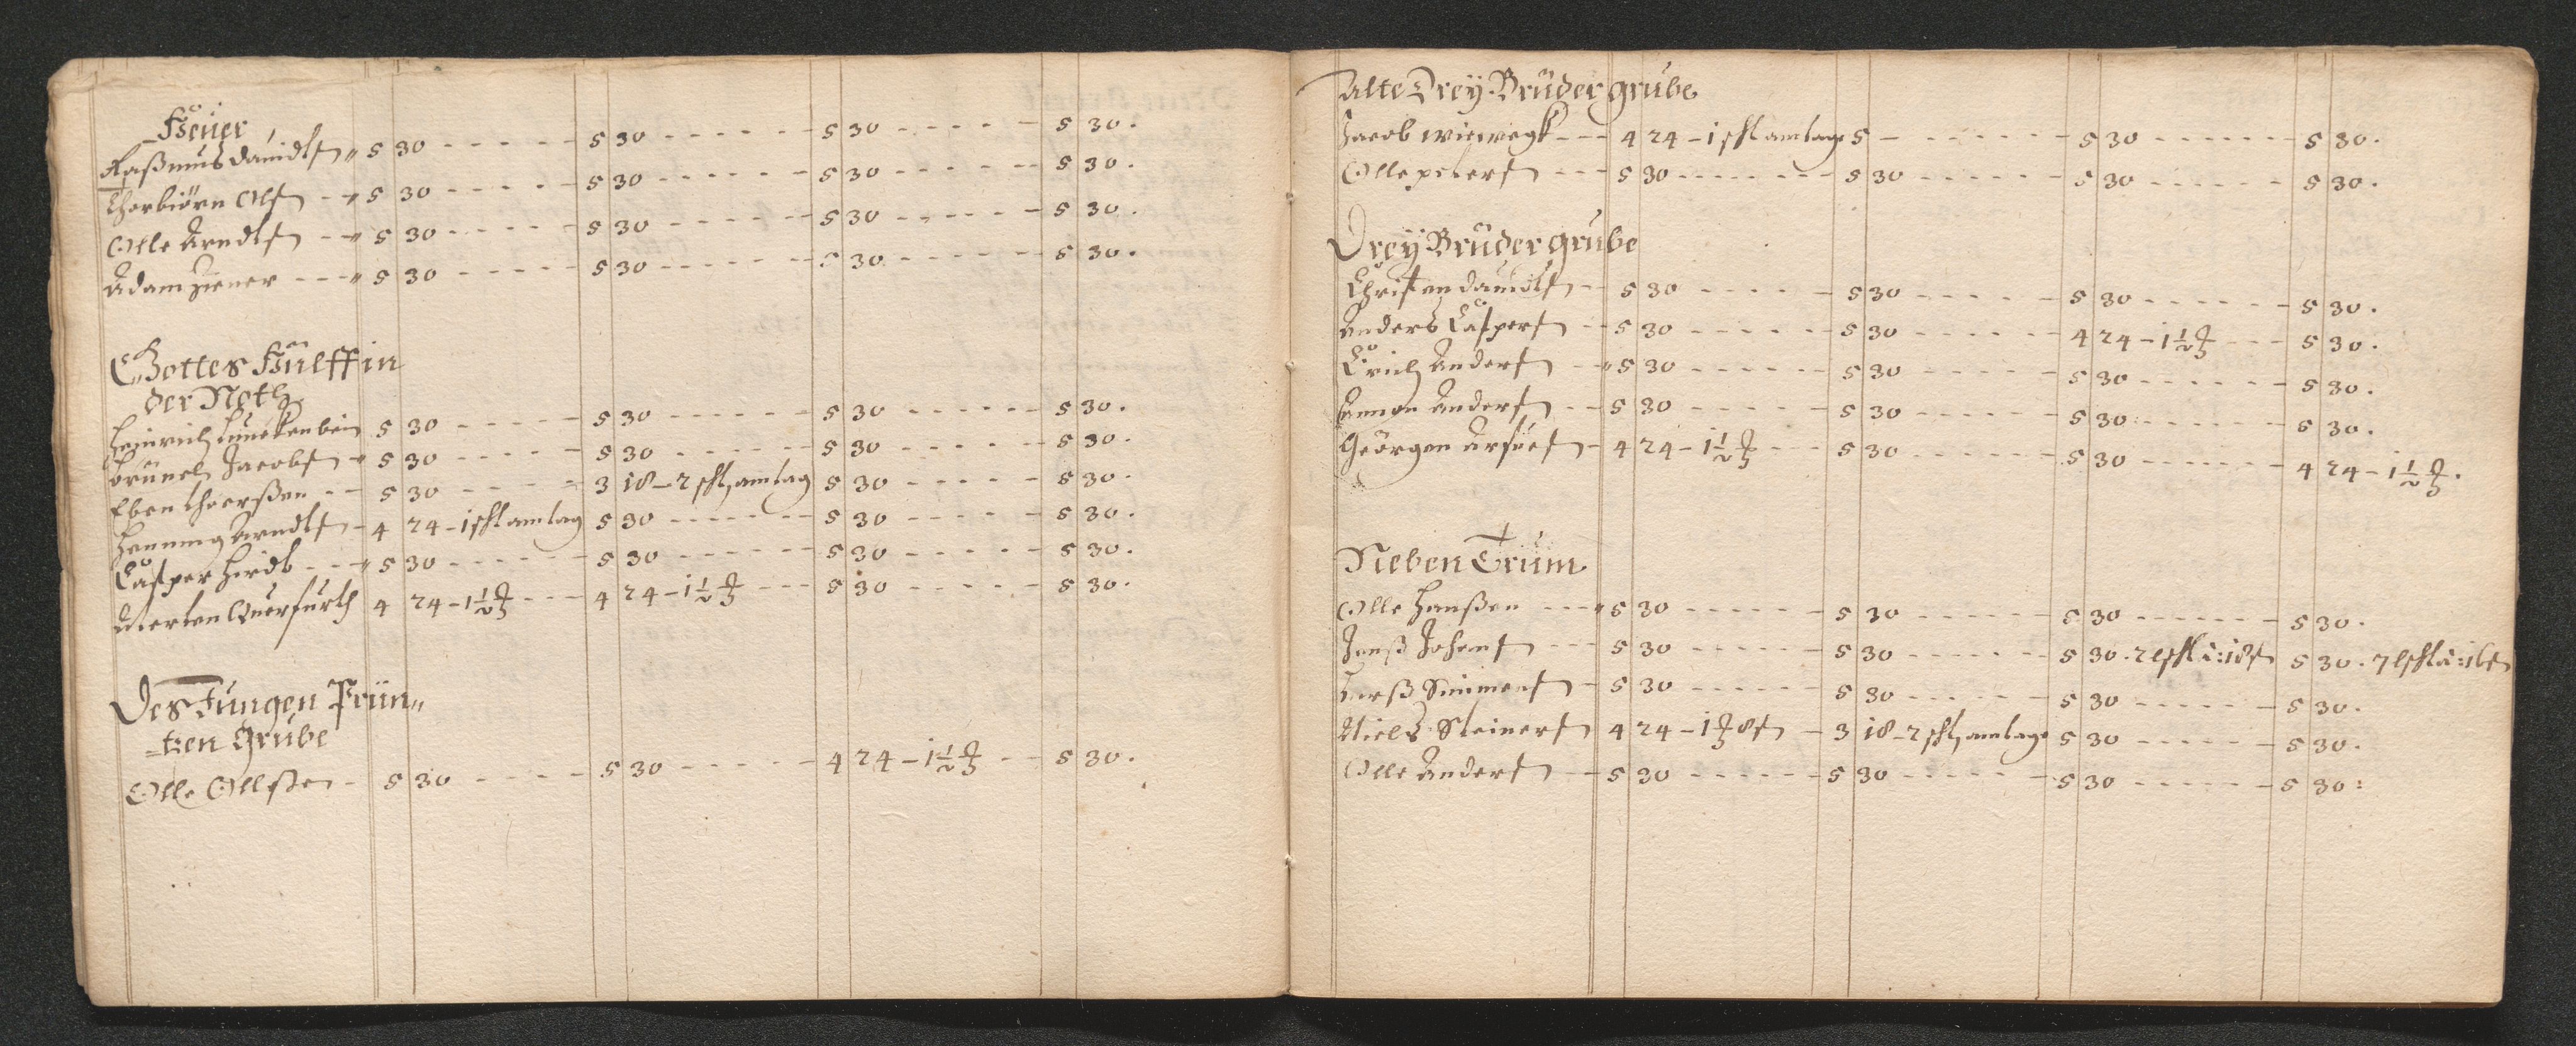 Häuer
Raßmus Dauidtsen „ 5 30 - - - - - 5 30 - - - - - 5 30 - - - - - 5 30.
Thorbiörn Olsen - „ 5 30 - - - - - 5 30 - - - - - 5 30 - - - - - 5 30.
Olle Arndtsen - „ 5 30 - - - - - 5 30 - - - - - 5 30 - - - - - 5 30.
Adam Ziener - - - „ 5 30 - - - - - 5 30 - - - - - 5 30 - - - - - 5 30.
Gottes Hülff in
der Noth
Heinrich 5 30 - - - - - 5 30 - - - - - 5 30 - - - - - 5 30.
Jacobsen „ 5 30 - - - - - 5 30 - - - - - 5 30 - - - - - 5 30.
Eben - - 5 30 - - - - - 3 18 - 2 schl am tag 5 30 - - - - - 5 30.
Henning Arndtsen - 4 24 - 1 schl am tag 5 30 - - - - - 5 30 - - - - - 5 30.
Casper Hirdt - - - „ 5 30 - - - - - 5 30 - - - - - 5 30 - - - - - 5 30.
Merten Querfurth 4 24 - 1 1/2 - - - 4 24 - 1 1/2 - - - 5 30 - - - - - 5 30.
Des Jungen Prin„
-tzen Grube
Olle Ollssen - 5 30 - - - - - 5 30 - - - - - 4 24 - 1 1/2 - - 5 30.
Alte Drey Brüder grube
Jacob - - - 4 24 - 1 schl am tage 5 - - - - - - 5 30 - - - - - 5 30.
Olle pedersen - - - 5 30 - - - - - 5 30 - - - - - 5 30 - - - - - 5 30.
Drey Brüder grube
Christen Dauidtsen - 5 30 - - - - - 5 30 - - - - - 5 30 - - - - - 5 30.
Anders Caspersen - - 5 30 - - - - - 5 30 - - - - - 4 24 - 1 1/2 - - - 5 30.
Erich Andersen - „ 5 30 - - - - - 5 30 - - - - - 5 30 - - - - - 5 30.
Andersen - - 5 30 - - - - - 5 30 - - - - - 5 30 - - - - - 5 30.
Geörgen - 4 24 - 1 1/2 - - - 5 30 - - - - - 5 30 - - - - - 4 24 - 1 1/2.
Neben Trum
Olle Hanßen - - - „ 5 30 - - - - - 5 30 - - - - - 5 30 - - - - - 5 30.
Jenß Johansen - - - 5 30 - - - - - 5 30 - - - - - 5 30. 5 30.
Larß Simmensen - 5 30 - - - - - 5 30 - - - - - 5 30 - - - - - 5 30.
Niels Steinersen 4 24 - 1 - 3 18 - 2 schl am tage 5 30 - - - - - 5 30.
Olle Andersen - - 5 30 - - - - - 5 30 - - - - - 5 30 - - - - - 5 30: